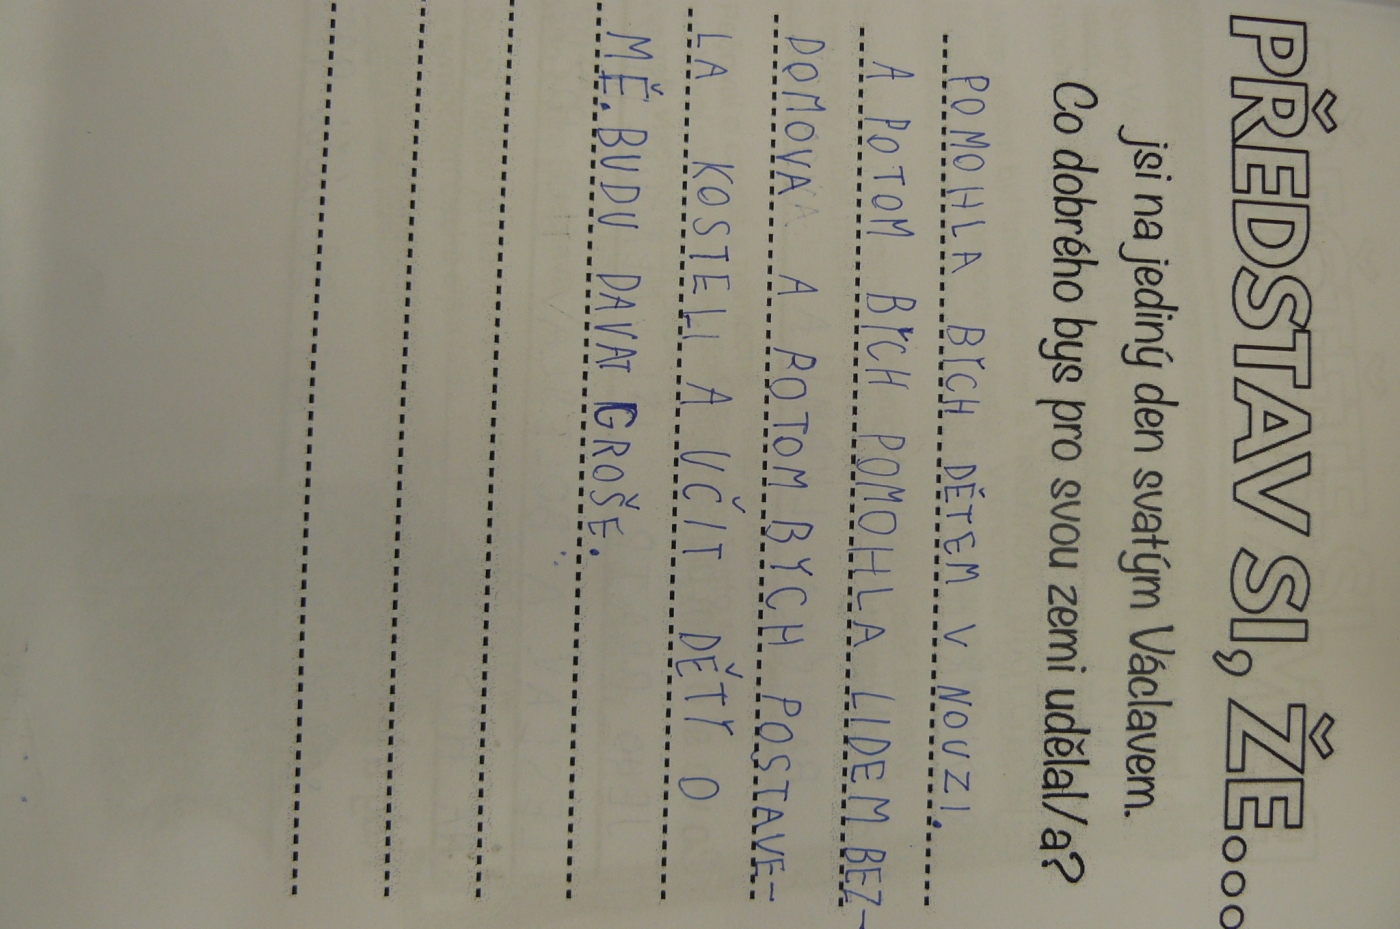 PŘEDSTAV SI, ŽE....
jsi na jediný den svatým Václavem.
Co dobrého bys pro svou zemi udělal/a?
POMOHLA BYCH DĚTEM V NOUZI.
A POTOM BYCH POMOHLA LIDEM BEZ-
DOMOVA A POTOM BYCH POSTAVE-
LA KOSTELI A UČIT DĚTY O
MĚ. BUDU DAVAT GROŠE.